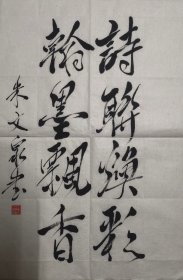 詩聯煥彩
翰墨飄香
朱文泉书